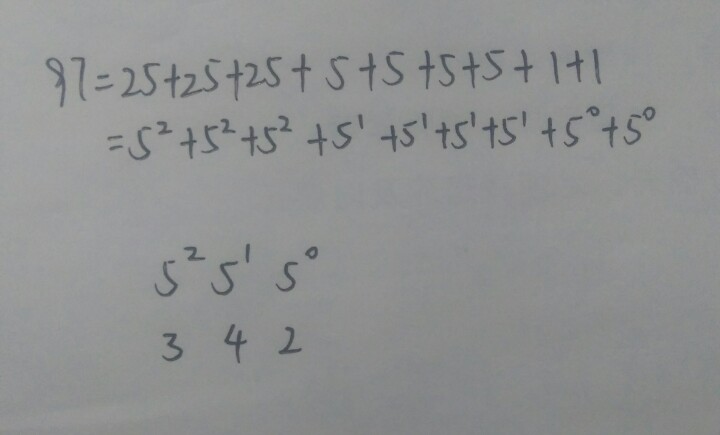 97=25+25+25+5+5+5+5+1+1
=5²+5²+5²+5¹+5¹+5¹+5¹+5⁰+5⁰
5² 5¹ 5⁰
3 4 2